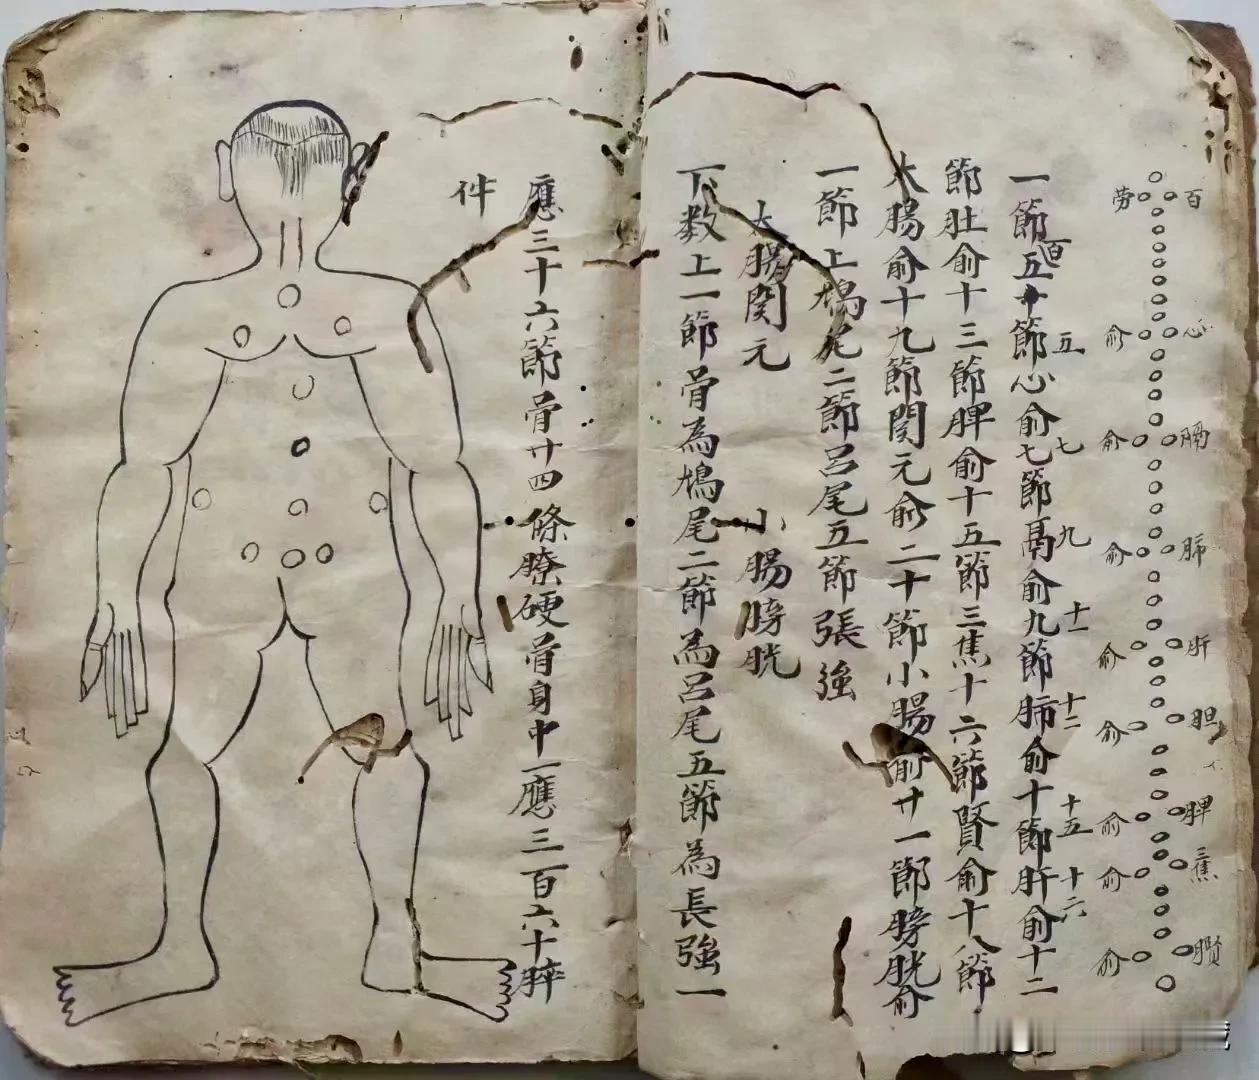 百 劳
心 俞 五
膈 俞 七
肺 俞 九
肝 俞 十一
胆 俞 十二
脾 俞 十五
三焦 俞 十六
俞
一節百五十節心俞七節鬲俞九節肺俞十節肝俞十二
節肚俞十三節脾俞十五節三焦十六節賢俞十八節
大腸俞十九節関元俞二十節小腸俞廿一節膀胱俞
一節上鳩尾二節呂尾五節張強
大腸関元 小腸膀胱
下数上一節骨為鳩尾二節為呂尾五節為長強一
應三十六節骨廿四條膫硬骨身中一應三百六十
件